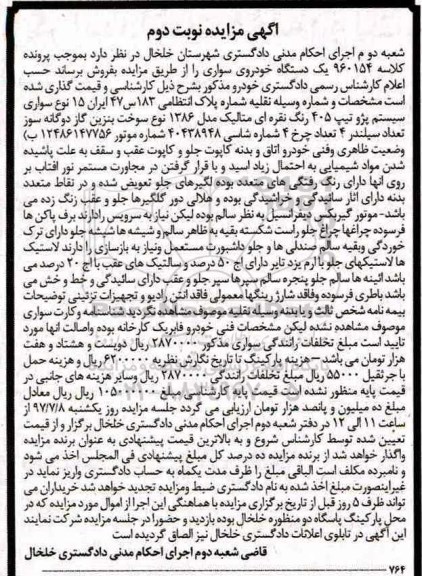 آگهی مزایده نوبت دوم
شعبه دو م اجرای احکام مدنی دادگستری شهرستان خلخال در نظر دارد بموجب پرونده
کلاسه ۹۶۰۱۵۴ یک دستگاه خودروی سواری را از طریق مزایده بفروش برساند حسب
اعلام کارشناس رسمی دادگستری خودرو مذکور بشرح ذیل کارشناسی و قیمت گذاری شده
است مشخصات و شماره وسیله نقلیه شماره پلاک انتظامی ۱۸۳س۴۷ ایران ۱۵ نوع سواری
سیستم پژو تیپ ۴۰۵ رنگ نقره ای متالیک مدل ۱۳۸۶ نوع سوخت بنزین گاز دوگانه سوز
تعداد سیلندر ۴ تعداد چرخ ۴ شماره شاسی ۴۰۴۳۸۹۴۸ شماره موتور ۱۲۴۸۶۱۴۷۷۵۶ ب)
وضعیت ظاهری وفنی خودرو اتاق و بدنه کاپوت جلو و کاپوت عقب و سقف به علت پاشیده
شدن مواد شیمیایی به احتمال زیاد اسید و یا قرار گرفتن در مجاورت مستمر نور افتاب بر
روی انها دارای رنگ رفتگی های متعدد بوده لگیرهای جلو تعویض شده و در نقاط متعدد
بدنه دارای اثار سائیدگی و خراشیدگی بوده و هلالی دور گلگیرها جلو و عقب زنگ زده می
باشد- موتور گیربکس دیفرانسیل به نظر سالم بوده لیکن نیاز به سرویس رادارند برف پاکن ها
فرسوده چراغها چراغ جلو راست شکسته بقیه به ظاهر سالم و شیشه ها شیشه جلو دارای ترک
خوردگی وبقیه سالم صندلی ها و جلو داشبورت مستعمل ونیاز به بازسازی را دارند لاستیک
ها لاستیکهای جلو با ارم یزد تایر دارای اج ۵۰ درصد و سالتیک های عقب با اج ۲۰ درصد می
باشد ائینه ها سالم جلو پنجره سالم سپرها سپر جلو و عقب دارای سائیدگی و خط و خش می
باشد باطری فرسوده وفاقد شارژ رینگها معمولی فاقد انتن رادیو و تجهیزات تزئینی توضیحات
بیمه نامه شخص ثالث و یا بدنه وسیله نقلیه موصوف مشاهده نگردید شناسنامه و کارت سواری
موصوف مشاهده نشده لیکن مشخصات فنی خودرو فابریک کارخانه بوده واصالت انها مورد
تایید است مبلغ تخلفات رانندگی سواری مذکور ۲۸۷۰۰۰۰ ریال دویست و هشتاد و هفت
هزار تومان می باشد – هزینه پارکینگ تا تاریخ نگارش نظریه ۶۲۰۰۰۰۰ ریال و هزینه حمل
با جرثقیل ۵۵۰۰۰۰ ریال مبلغ تخلفات رانندگی ۲۸۷۰۰۰۰ ریال وسایر هزینه های جانبی در
قیمت پایه منظور نشده است قیمت پایه کارشناسی مبلغ ۱۰۵۰۰۰۰۰۰ ریال ریال معادل
مبلغ ده میلیون و پانصد هزار تومان ارزیابی می گردد جلسه مزایده روز یکشنبه ۹۷/۷/۸ از
ساعت ۱۱ الی ۱۲ در دفتر شعبه دوم اجرای احکام مدنی دادگستری خلخال برگزار و از قیمت
تعیین شده توسط کارشناس شروع و به بالاترین قیمت پیشنهادی به عنوان برنده مزایده
واگذار خواهد شد از برنده مزایده ده درصد کل مبلغ پیشنهادی فی المجلس اخذ می شود
و نامبرده مکلف است الباقی مبلغ را ظرف مدت یکماه به حساب دادگستری واریز نماید در
غیراینصورت مبلغ اخذ شده به نام دادگستری ضبط ومزایده تجدید خواهد شد خریداران می
تواند ظرف ۵ روز قبل از تاریخ برگزاری مزایده با هماهنگی این اجرا از اموال مورد مزایده که در
محل پارکینگ پاسگاه دو منظوره خلخال بوده بازدید و حضورا در جلسه مزایده شرکت نمایند
این آگهی در تابلوی اعلانات دادگستری خلخال نیز الصاق گردیده است
قاضی شعبه دوم اجرای احکام مدنی دادگستری خلخال
۷۶۴